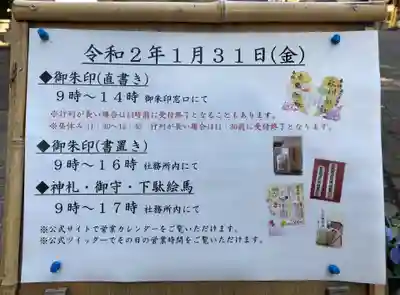 令和２年１月３１日(金)
◆御朱印(直書き)
９時～１４時 御朱印窓口にて
※行列が長い場合は14時前に受付終了となることもあります。
行列が長い場合は11:30前に受付終了となります。
◆御朱印(書置き)
９時～１６時 社務所内にて
◆神札・御守・下駄絵馬
９時～１７時 社務所内にて
※公式サイトで営業カレンダーをご覧いただけます。
※公式ツイッターでその日の営業時間をご覧いただけます。